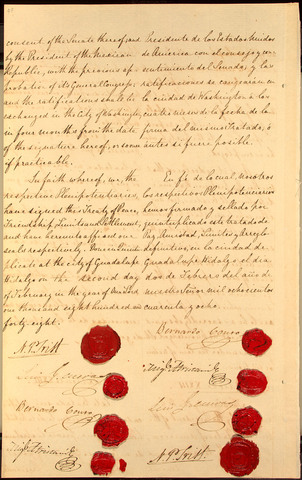 consent of the Senate thereof; and
by the President of the Mexican
Republic, with the previous ap-
probation of its General Congress;
and the ratifications shall be
exchanged in the City of Washington,
in four months from the date
of the signature hereof, or sooner
if practicable.
In faith whereof, we, the
respective Plenipotentiaries,
have signed this Treaty of Peace,
Friendship, Limits and Settlement,
and have hereunto affixed our
seals respectively. Done in Quintu-
plicate at the City of Guadalupe
Hidalgo on the second day
of February in the year of Our Lord
one thousand eight hundred and
forty eight.
N. P. Trist
Luis G. Cuevas
Bernardo Couto
Migl. Atristain
Presidente de los Estados Unidos
de America con el consejo y con-
sentimiento del Senado, y las
ratificaciones se cangearán en
la ciudad de Washington a los
cuatro meses de la fecha de la
firma del mismo Tratado, ó
antes si fuere posible.
En fé de lo cual, nosotros
los respectivos Plenipotenciarios
hemos firmado y sellado por
quintuplicado este tratado de
Paz, Amistad, Limites y Arreglo
definitivo, en la ciudad de
Guadalupe Hidalgo el dia
dos de Febrero del año de
nuestro Señor mil ochocientos
cuarenta y ocho.
Bernardo Couto
Migl. Atristain
Luis G. Cuevas
N. P. Trist